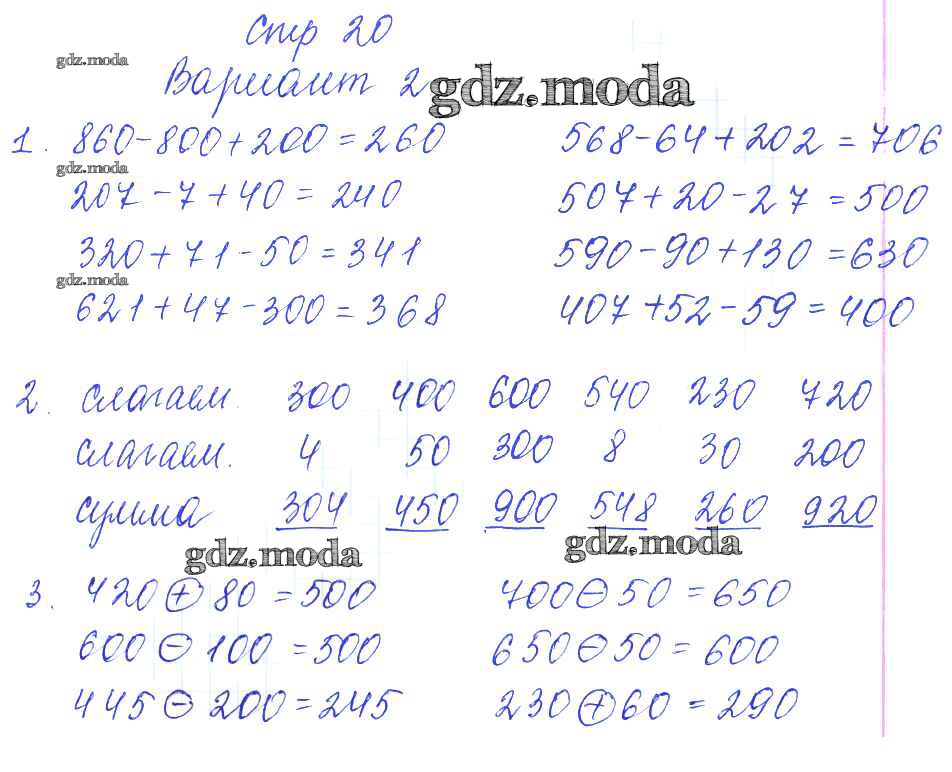 Стр 20
gdz.moda
Вариант 2
gdz.moda
1. 860-800+200=260 568-64+202=706
gdz.moda
207-7+40=240 507+20-27=500
320+71-50=341 590-90+130=630
gdz.moda
621+47-300=368 407+52-59=400
2. слагаем. 300 400 600 540 230 720
слагаем. 4 50 300 8 30 200
сумма 304 450 900 548 260 920
gdz.moda gdz.moda
3. 420 + 80 = 500 700 - 50 = 650
600 - 100 = 500 650 - 50 = 600
445 - 200 = 245 230 + 60 = 290